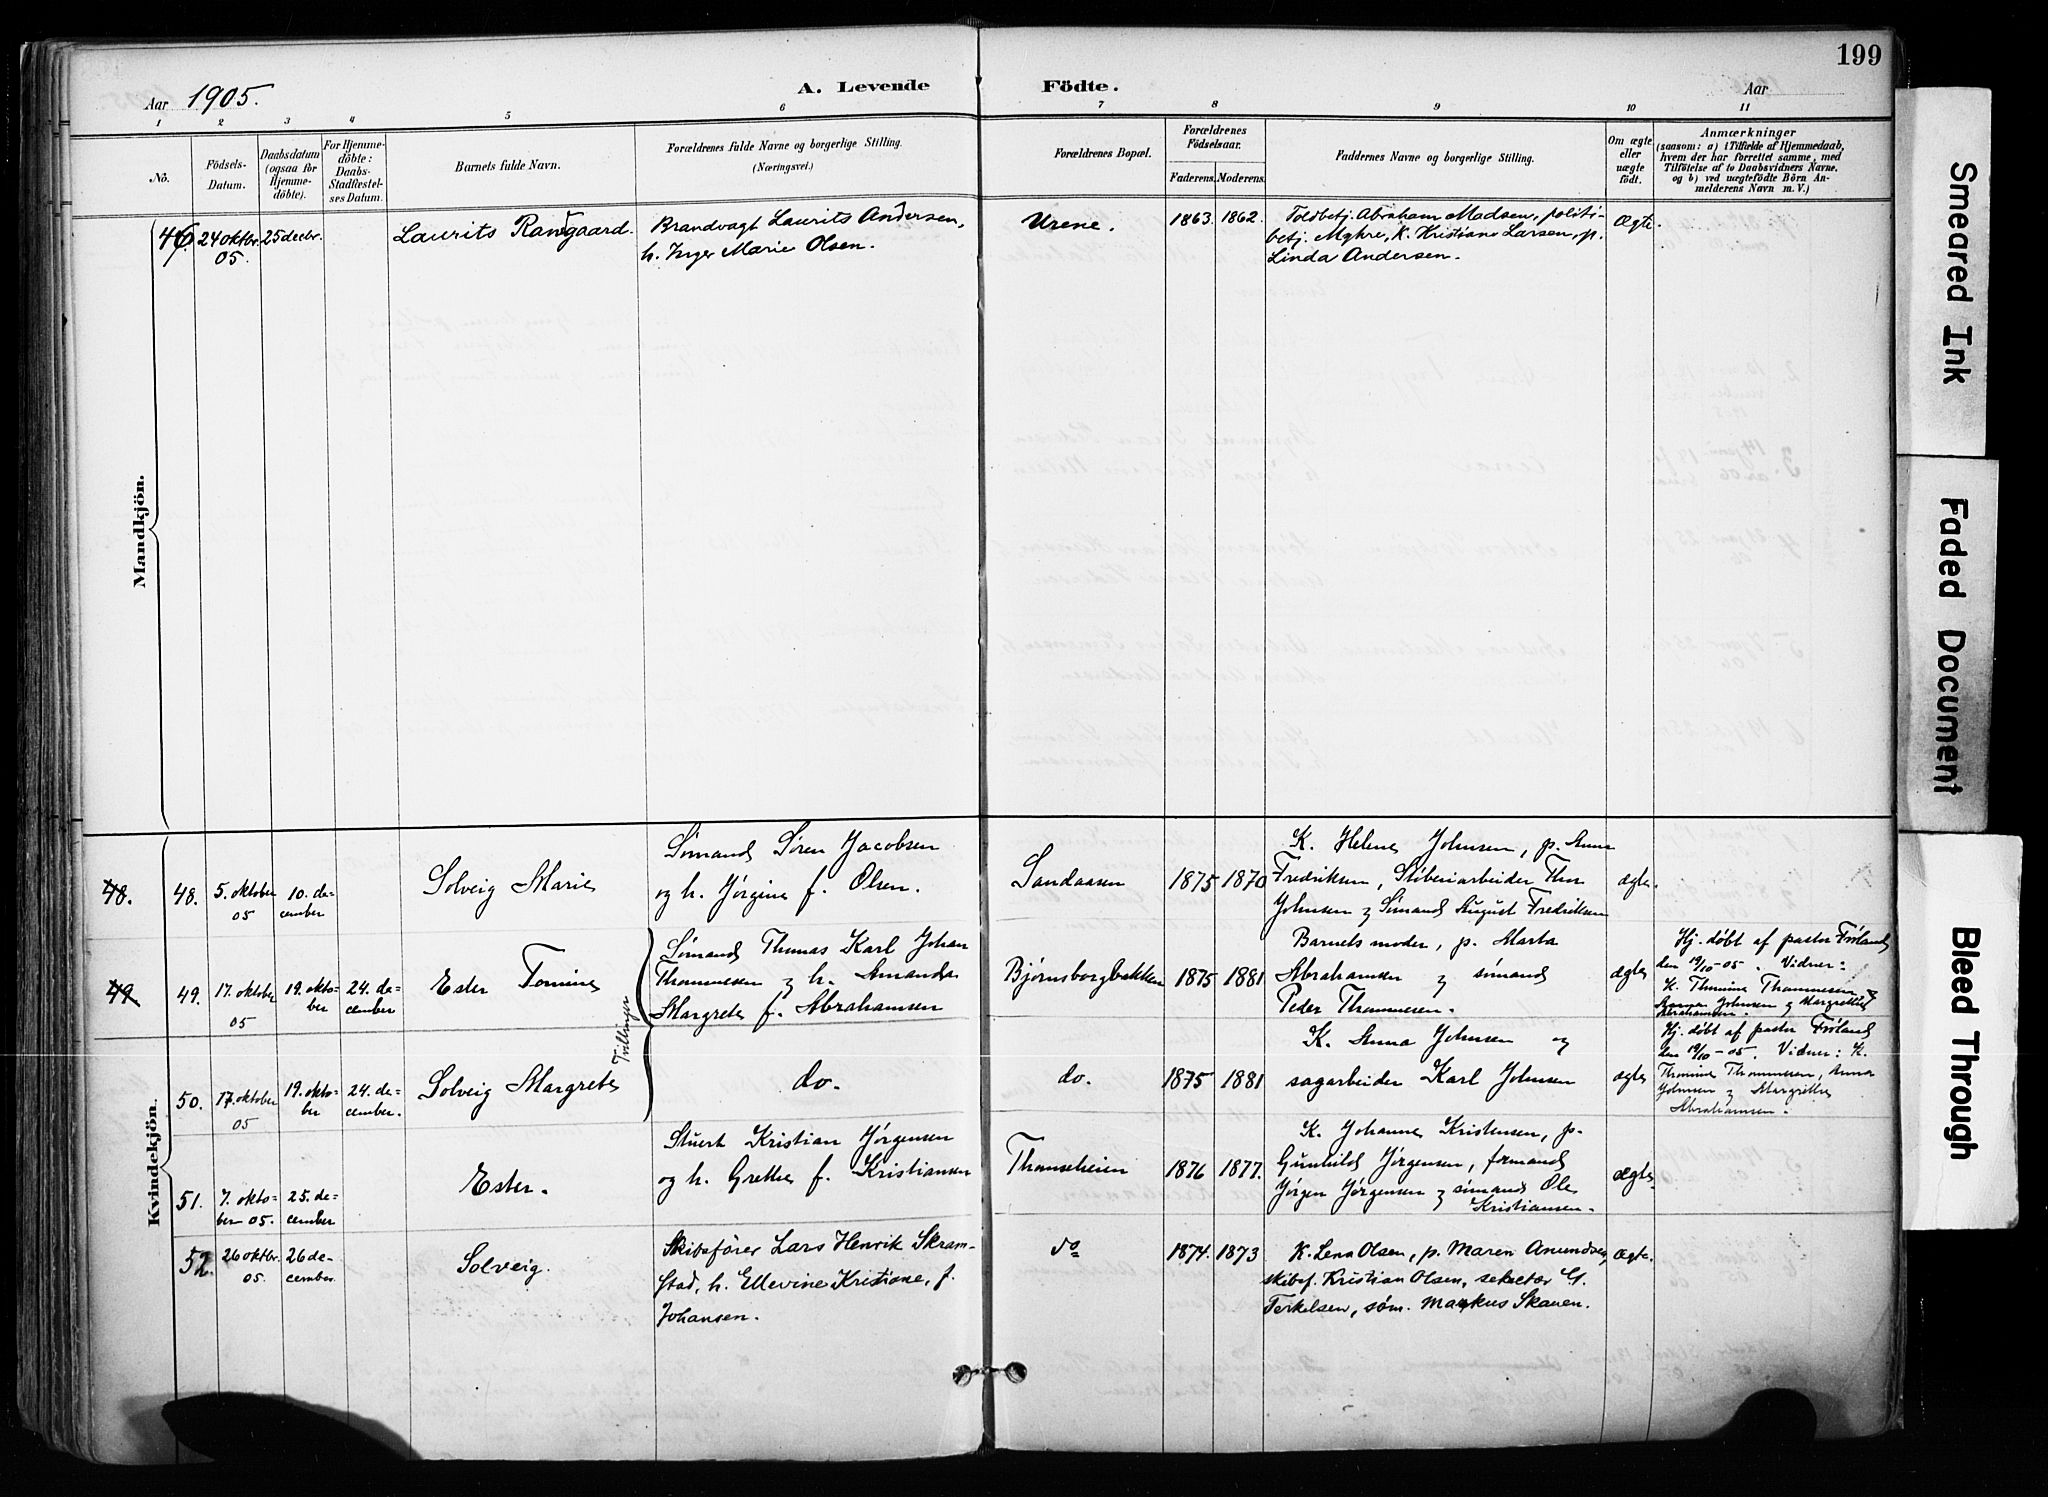 199
Aar 1905.
A. Levende Födte.
Aar
1 2 3 4 5 6 7 8 9 10 11
No.
Födsels-
Datum.
Daabsdatum
(ogsaa for
Hjemme-
döbte).
For Hjemme-
döbte:
Daabs-
Stadfæstel-
ses Datum.
Barnets fulde Navn.
Forældrenes fulde Navne og borgerlige Stilling.
(Næringsvei.)
Forældrenes Bopæl.
Forældrenes
Födselsaar.
Faderens. Moderens.
Faddernes Navne og borgerlige Stilling.
Om ægte
eller
uægte
födt.
Anmærkninger
(saasom: a) i Tilfælde af Hjemmedaab,
hvem der har forrettet samme, med
Tilföielse af to Daabsvidners Navne,
og b) ved uægtefödte Börn An-
melderens Navn m. V.)
Mandkjön.
24 oktbr.
05
25 decbr.
Laurits Randgaard.
Brandvagt Laurits Andersen,
h. Inger Marie Olsen.
Urene.
1863. 1862.
Toldbetj. Abraham Madsen, politi-
betj. Myhre, K. Kristiane Larsen, p.
Linda Andersen.
Ægte.
Kvindekjön.
48.
48.
5. oktober
05
10. de-
cember
Solveig Marie
Sømand Søren Jacobsen
og h. Jørgine f. Olsen.
Sandaasen
1875 1870
K. Helene Johnsen, p. Anna
Fredriksen, Støberiarbeider Thor
Johnsen og Sømand August Fredriksen
ægte.
49.
49.
17. oktober
05
19. okto-
ber
24. de-
cember
Ester Tomine
Tvillinger
Sømand Thomas Karl Johan
Thommesen og h. Amanda
Margrete f. Abrahamsen
Bjørnsborgbakken
1875 1881
Barnets moder, p. Marta
Abrahamsen og sømand
Peder Thommesen.
ægte
Hj. døbt af pastor Frøland
den 19/10-05. Vidner:
K. Thomine Thommesen,
Anna Johnsen og Margrethe
Abrahamsen.
50.
17. oktober
05
19. okto-
ber
24. de-
cember.
Solveig Margrete
do.
do.
1875 1881
K. Anna Johnsen og
sagarbeider Karl Johnsen
ægte
Hj. døbt af pastor Frøland
den 19/10-05. Vidner: K.
Thomine Thommesen, Anna
Johnsen og Margrethe
Abrahamsen.
51.
7. okto-
ber 05.
25. de-
cember
Ester.
Stuert Kristian Jørgensen
og h. Grethe f. Kristiansen
1876 1877.
K. Johanne Kristensen, p.
Gunhild Jørgensen, formand
Jørgen Jørgensen og sømand Ole
Kristiansen.
ægte.
52.
26 oktbr.
05.
26 de-
cember.
Solveig.
Skibsfører Lars Henrik Skram-
stad, h. Ellevine Kristiane, f.
Johansen.
do
1874. 1873
K. Lena Olsen, p. Maren Amundsen,
skibsf. Kristian Olsen,
Terkelsen, søm. Markus Skauen.
Ægte.
Smeared Ink
Faded Document
Bleed Through